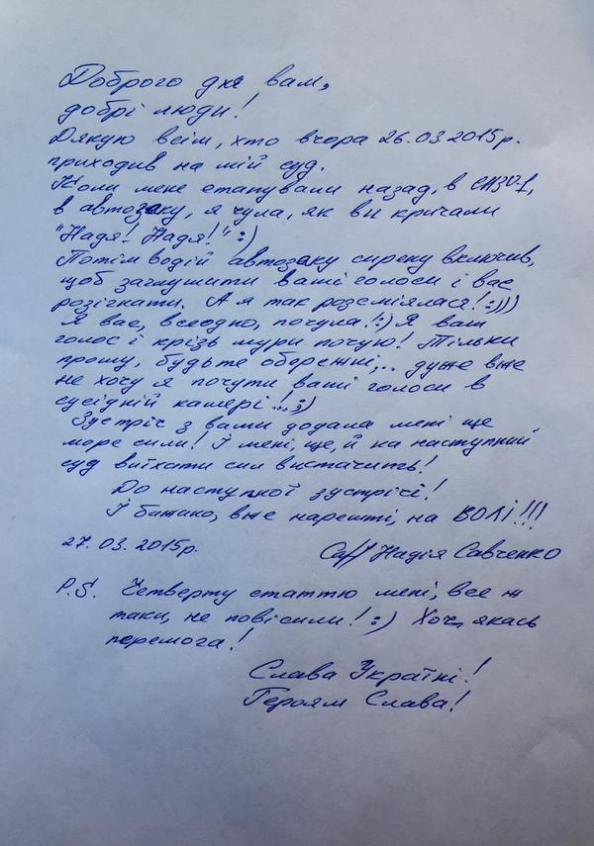 Доброго дня вам,
добрі люди!
Дякую всім, хто вчора 26.03 2015р.
приходив на мій суд.
Коли мене етапували назад, в СИЗО-1,
в автозаку, я чула, як ви кричали
"Надя! Надя!" :)
Потім водій автозаку сирену включив,
щоб заглушити ваші голоси і вас
розігнати. А я так розсміялася! :)))
Я вас, всеодно, почула! :) Я ваш
голос і крізь мури почую! Тільки
прошу, будьте обережні,.. дуже вже
не хочу я почути ваші голоси в
сусідній камері!... ;)
Зустріч з вами додала мені ще
море сили! І мені, ще, й на наступний
суд виїхати сил вистачить!
До наступної зустрічі!
І бажано, вже нарешті, на ВОЛІ!!!
27. 03. 2015р. Надія Савченко
P.S. Четверту статтю мені, все ж
таки, не повісили! :) Хоч, якась
перемога!
Слава Україні!
Героям Слава!